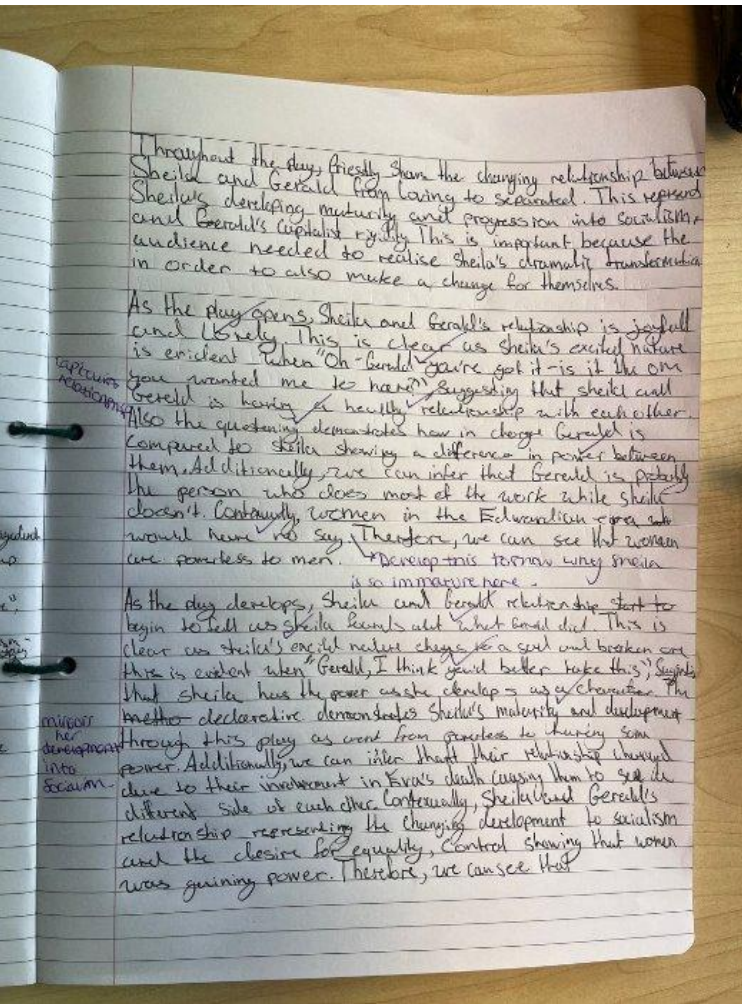 Throughout the play, Priestly shows the changing relationship between
Sheila and Gerald from loving to separated. This represents
Sheila's developing maturity and progression into socialism,
and Gerald's capitalist rigidity. This is important because the
audience needed to realise Sheila's dramatic transformation
in order to also make a change for themselves.
As the play opens, Sheila and Gerald's relationship is joyfull
and lovely. This is clear as Sheila's excited nature
is evident when "Oh - Gerald you've got it - is it the one
you wanted me to have" suggesting that sheila and
relationship
Gerald is having a healthy relationship with each other.
Also the demonstrates how in charge Gerald is
compared to sheila showing a difference in power between
them. Additionally, we can infer that Gerald is probably
the person who does most of the work while sheila
doesn't. women in the Edwardian
would have no say. Therefore, we can see that women
are powerless to men. Develop this to show why Sheila
is so immature here.
As the play develops, Sheila and Gerald relationship start to
begin to fall as sheila founds out what Gerald did. This is
clear as sheila's nature to a and broken one
this is evident when "Gerald, I think you'd better take this",
that sheila has the power as she develops as a character. The
declarative demonstrates Sheila's maturity and development
mirrors
her
development
into
Socialism
through this play as went from powerless to having some
power. Additionally, we can infer that their relationship changed
due to their involvement in Eva's death causing them to see
different side of each other. Contextually, Sheila and Gerald's
relationship representing the changing development to socialism
and the desire for equality, control showing that women
was gaining power. Therefore, we can see that